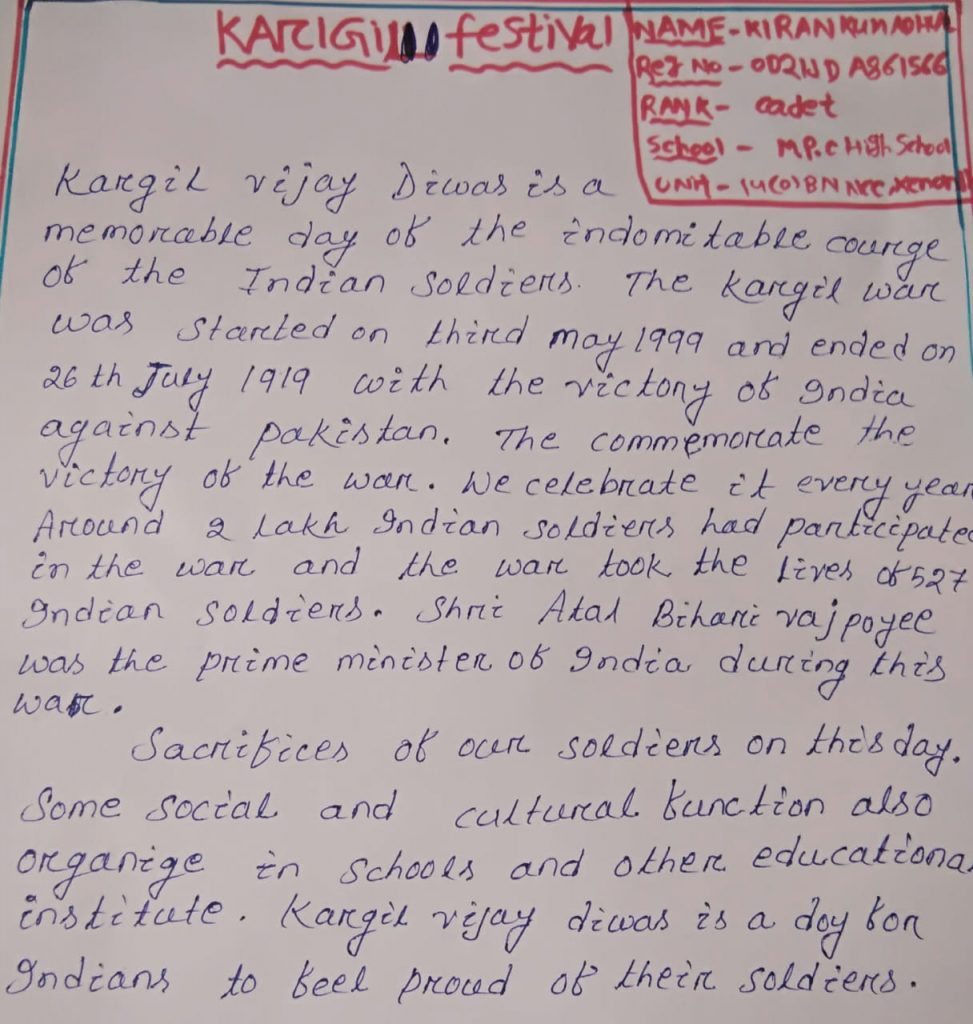 KARIGIl festival
NAME - KIRAN KUMAR
Reg No - OD21JD A861566
RANK - cadet
School - M.P.C High School
UNIT - 14(O) BN NCC
Kargil vijay Diwas is a
memorable day of the indomitable courge
of the Indian soldiers. The kargil war
was started on third may 1999 and ended on
26 th July 1919 with the victory of India
against pakistan. The commemorate the
victory of the war. We celebrate it every year
Around 2 lakh Indian soldiers had participated
in the war and the war took the lives of 527
Indian soldiers. Shri Atal Bihari vajpoyee
was the prime minister of India during this
war.
Sacrifices of our soldiers on this day.
Some social and cultural function also
organige in schools and other educational
institute. Kargil vijay diwas is a doy for
Indians to feel proud of their soldiers.